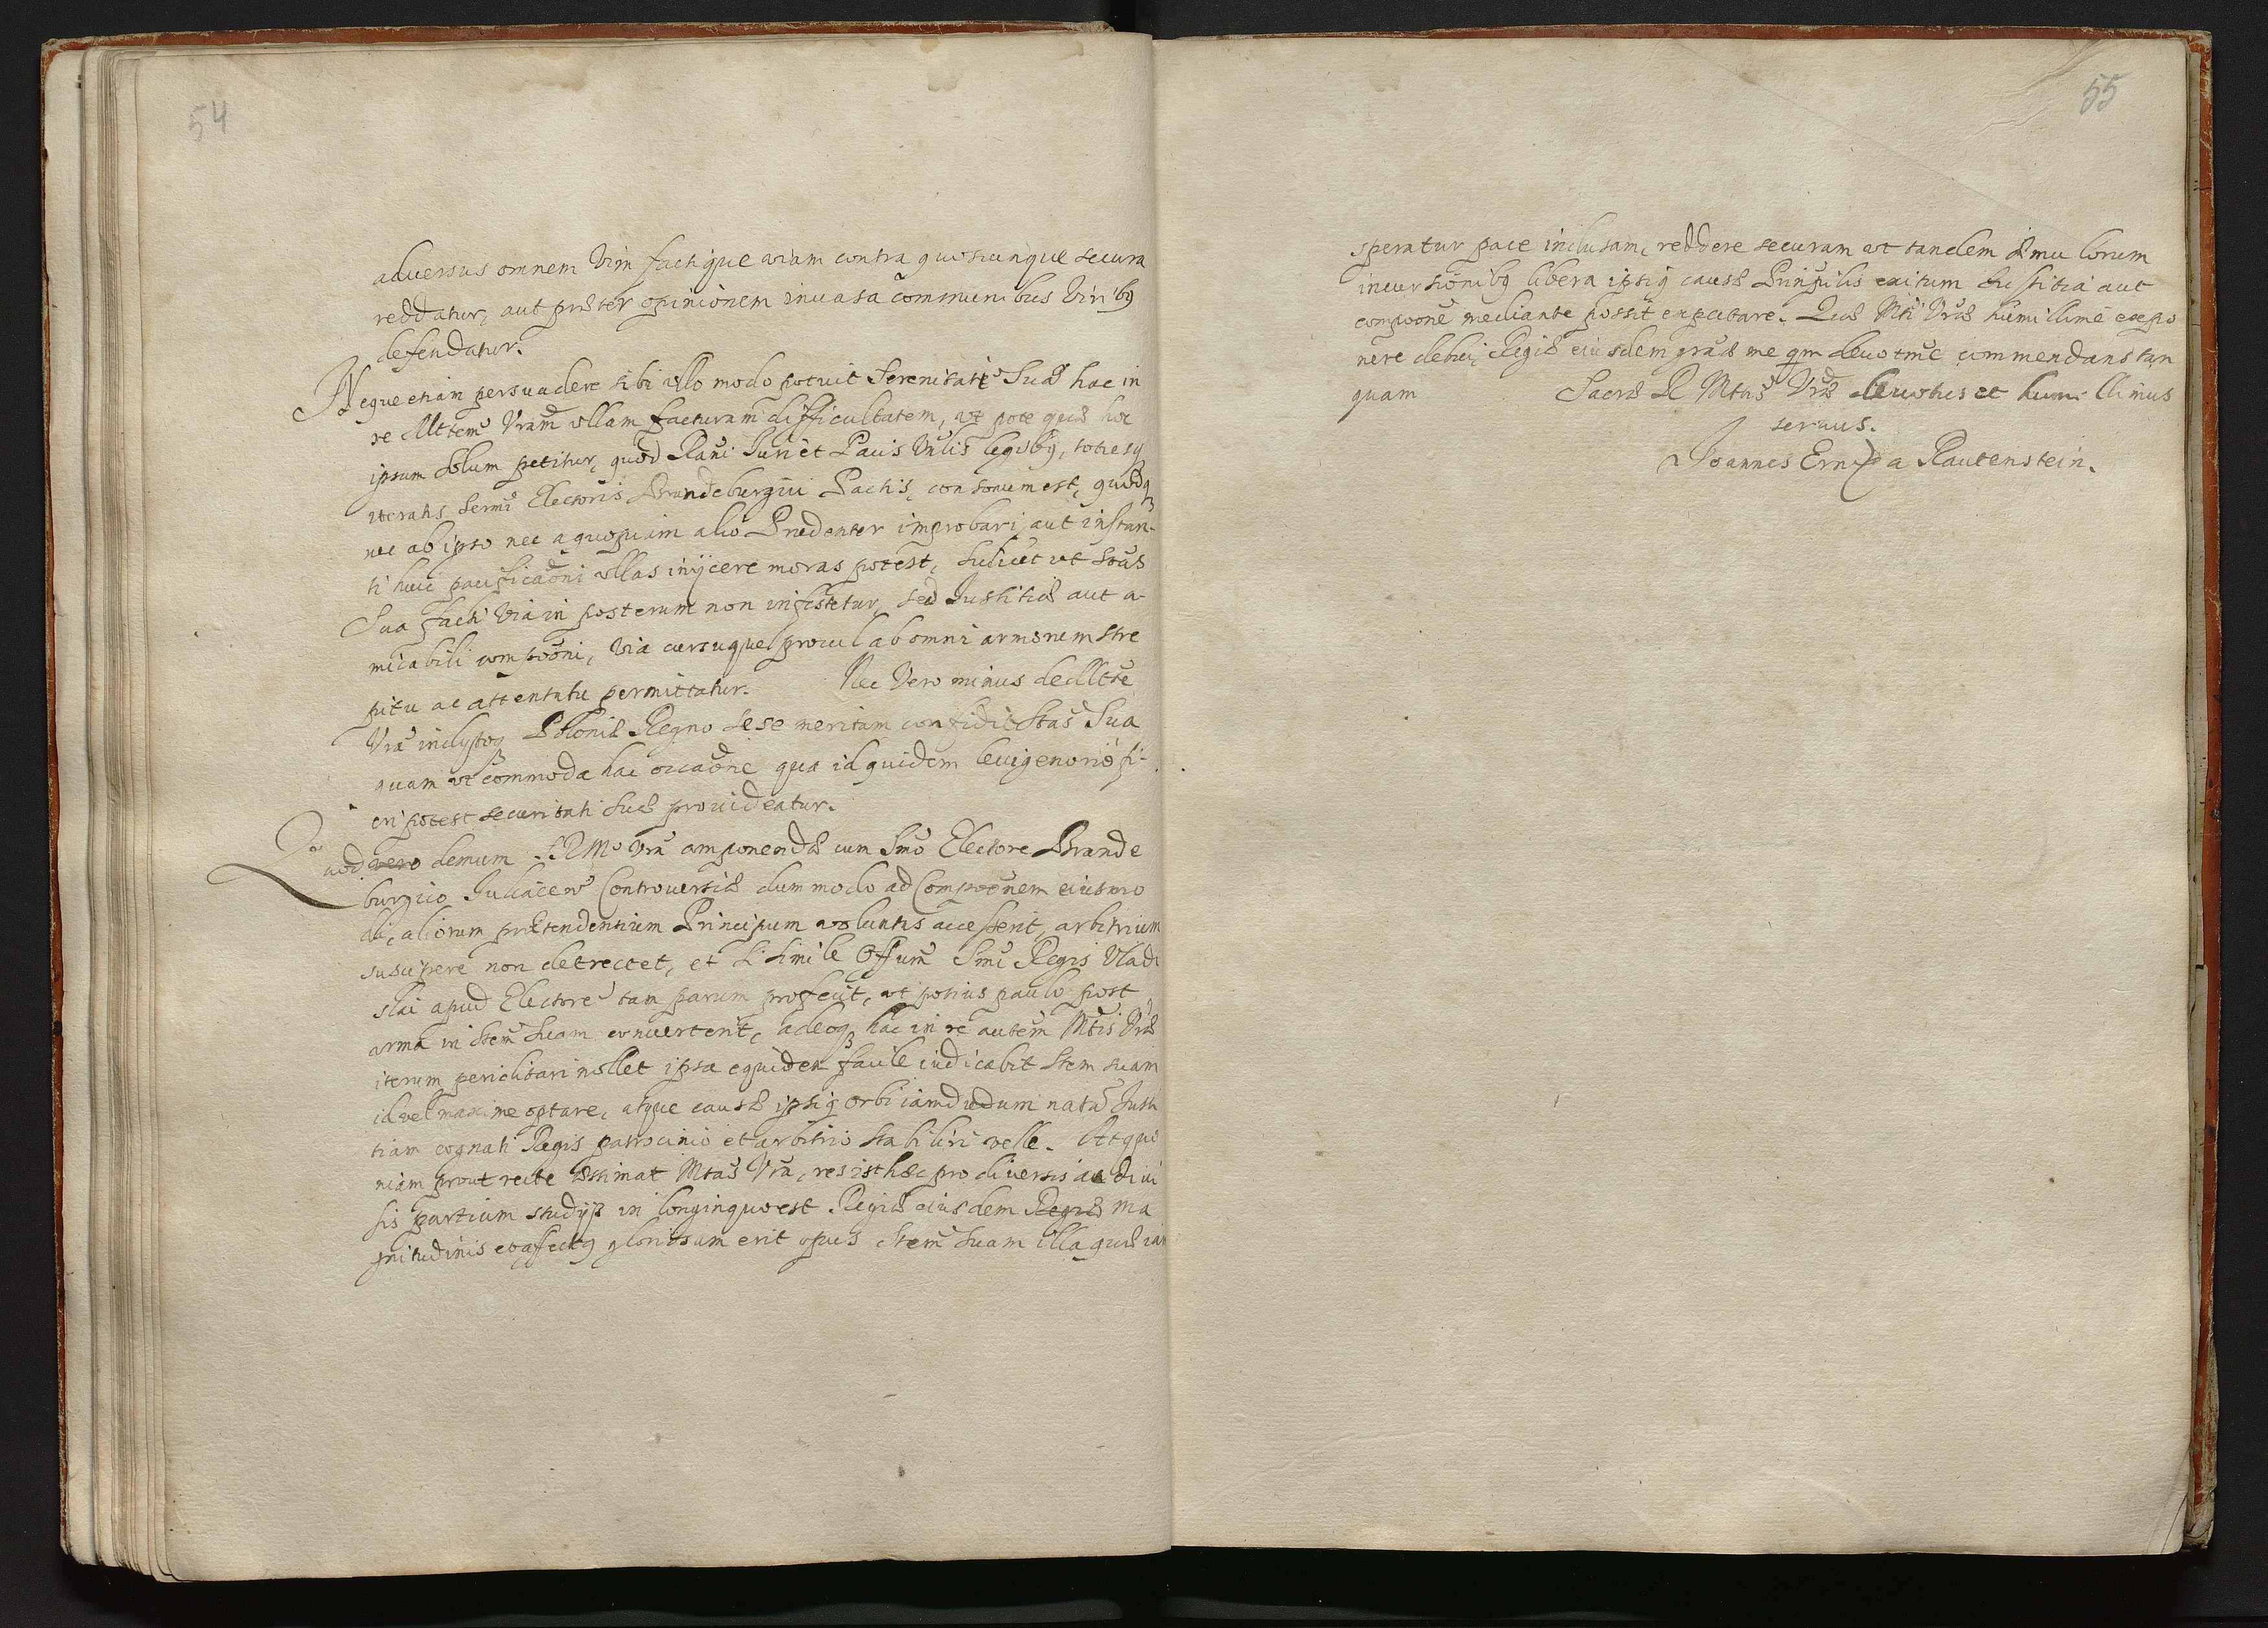 54
adversus omnem Vim factique viam contra quoscunque secura
reddatur, aut præter opinionem invasa communibus Viribq
defendatur.
Neque etiam persuadere sibi ullo modo potuit Serenitati Suæ hac in
re Mttem Vram ullam facturam difficultatem, ut pote quæ hoc
ipsum solum petitur, quod Rani Iuri et Pacis Vnlis legibq, totiesq
iteratis Sermi Electoris Brandeburgici Pactis, consonum est, quodq
nec ab ipso nec a quopiam alio Prudenter improbari aut instan-
ti huic pacificaoni ullas inijcere moras potest, scilicet ut Stas
Sua facti Via in posterum non infestetur, sed Iustitiæ aut a-
micabili compooni, Via cursuque procul ab omni armorum stre
pitu ac attentatu permittatur. Nec Vero minus de Mtte
Vra inclytoq Poloniæ Regno sese meritam confidit Stas Sua
quam ut commoda hac occaone qua id quidem fi-
eri potest securitati suæ provideatur.
Quod vero demum S R M Vra componendæ cum Smo Electore Brande
burgico Iuliacen Controversiæ dummodo ad Compoonem eiusmo
di, aliorum prætendentium Principum voluntas accesserit, arbitrium
suscipere non detrectet, et si simile Offum Smi Regis Vladi
slai apud Electore tam parum profecit, ut potius paulo post
arma in Stem Suam converterit, adeoq hac in re autem Mtis Vræ
iterum periclitari nollet ipsa equidem facile iudicabit Stem suam
id vel maxime optare, atque causæ ipsiq orbi iamdudum nata Iusti
tiam cognati Regis patrocinio et arbitrio stabiliri velle. At quo
niam prout recte æstimat Mtas Vra, res isthæc pro diversis ac divi
sis partium studijs in longinquo est Regiæ eiusdem Regiæ Ma
gnitudinis et affectq gloriosum erit opus Stem Suam illa quæ iam
55
speratur pace inclusam, reddere securam ut tandem æmulorum
incursionibq libera ipsiq causæ Principilis exitum Iustitia aut
compoone mediante possit expectare. Quæ Mti Vræ humillime expo
nere debui, Regiæ eiusdem graæ me qm devotme commendans tan
quam Sacræ R Mtas Vræ devotus et humillimus
servus.
Joannes Ernst a Rautenstein.